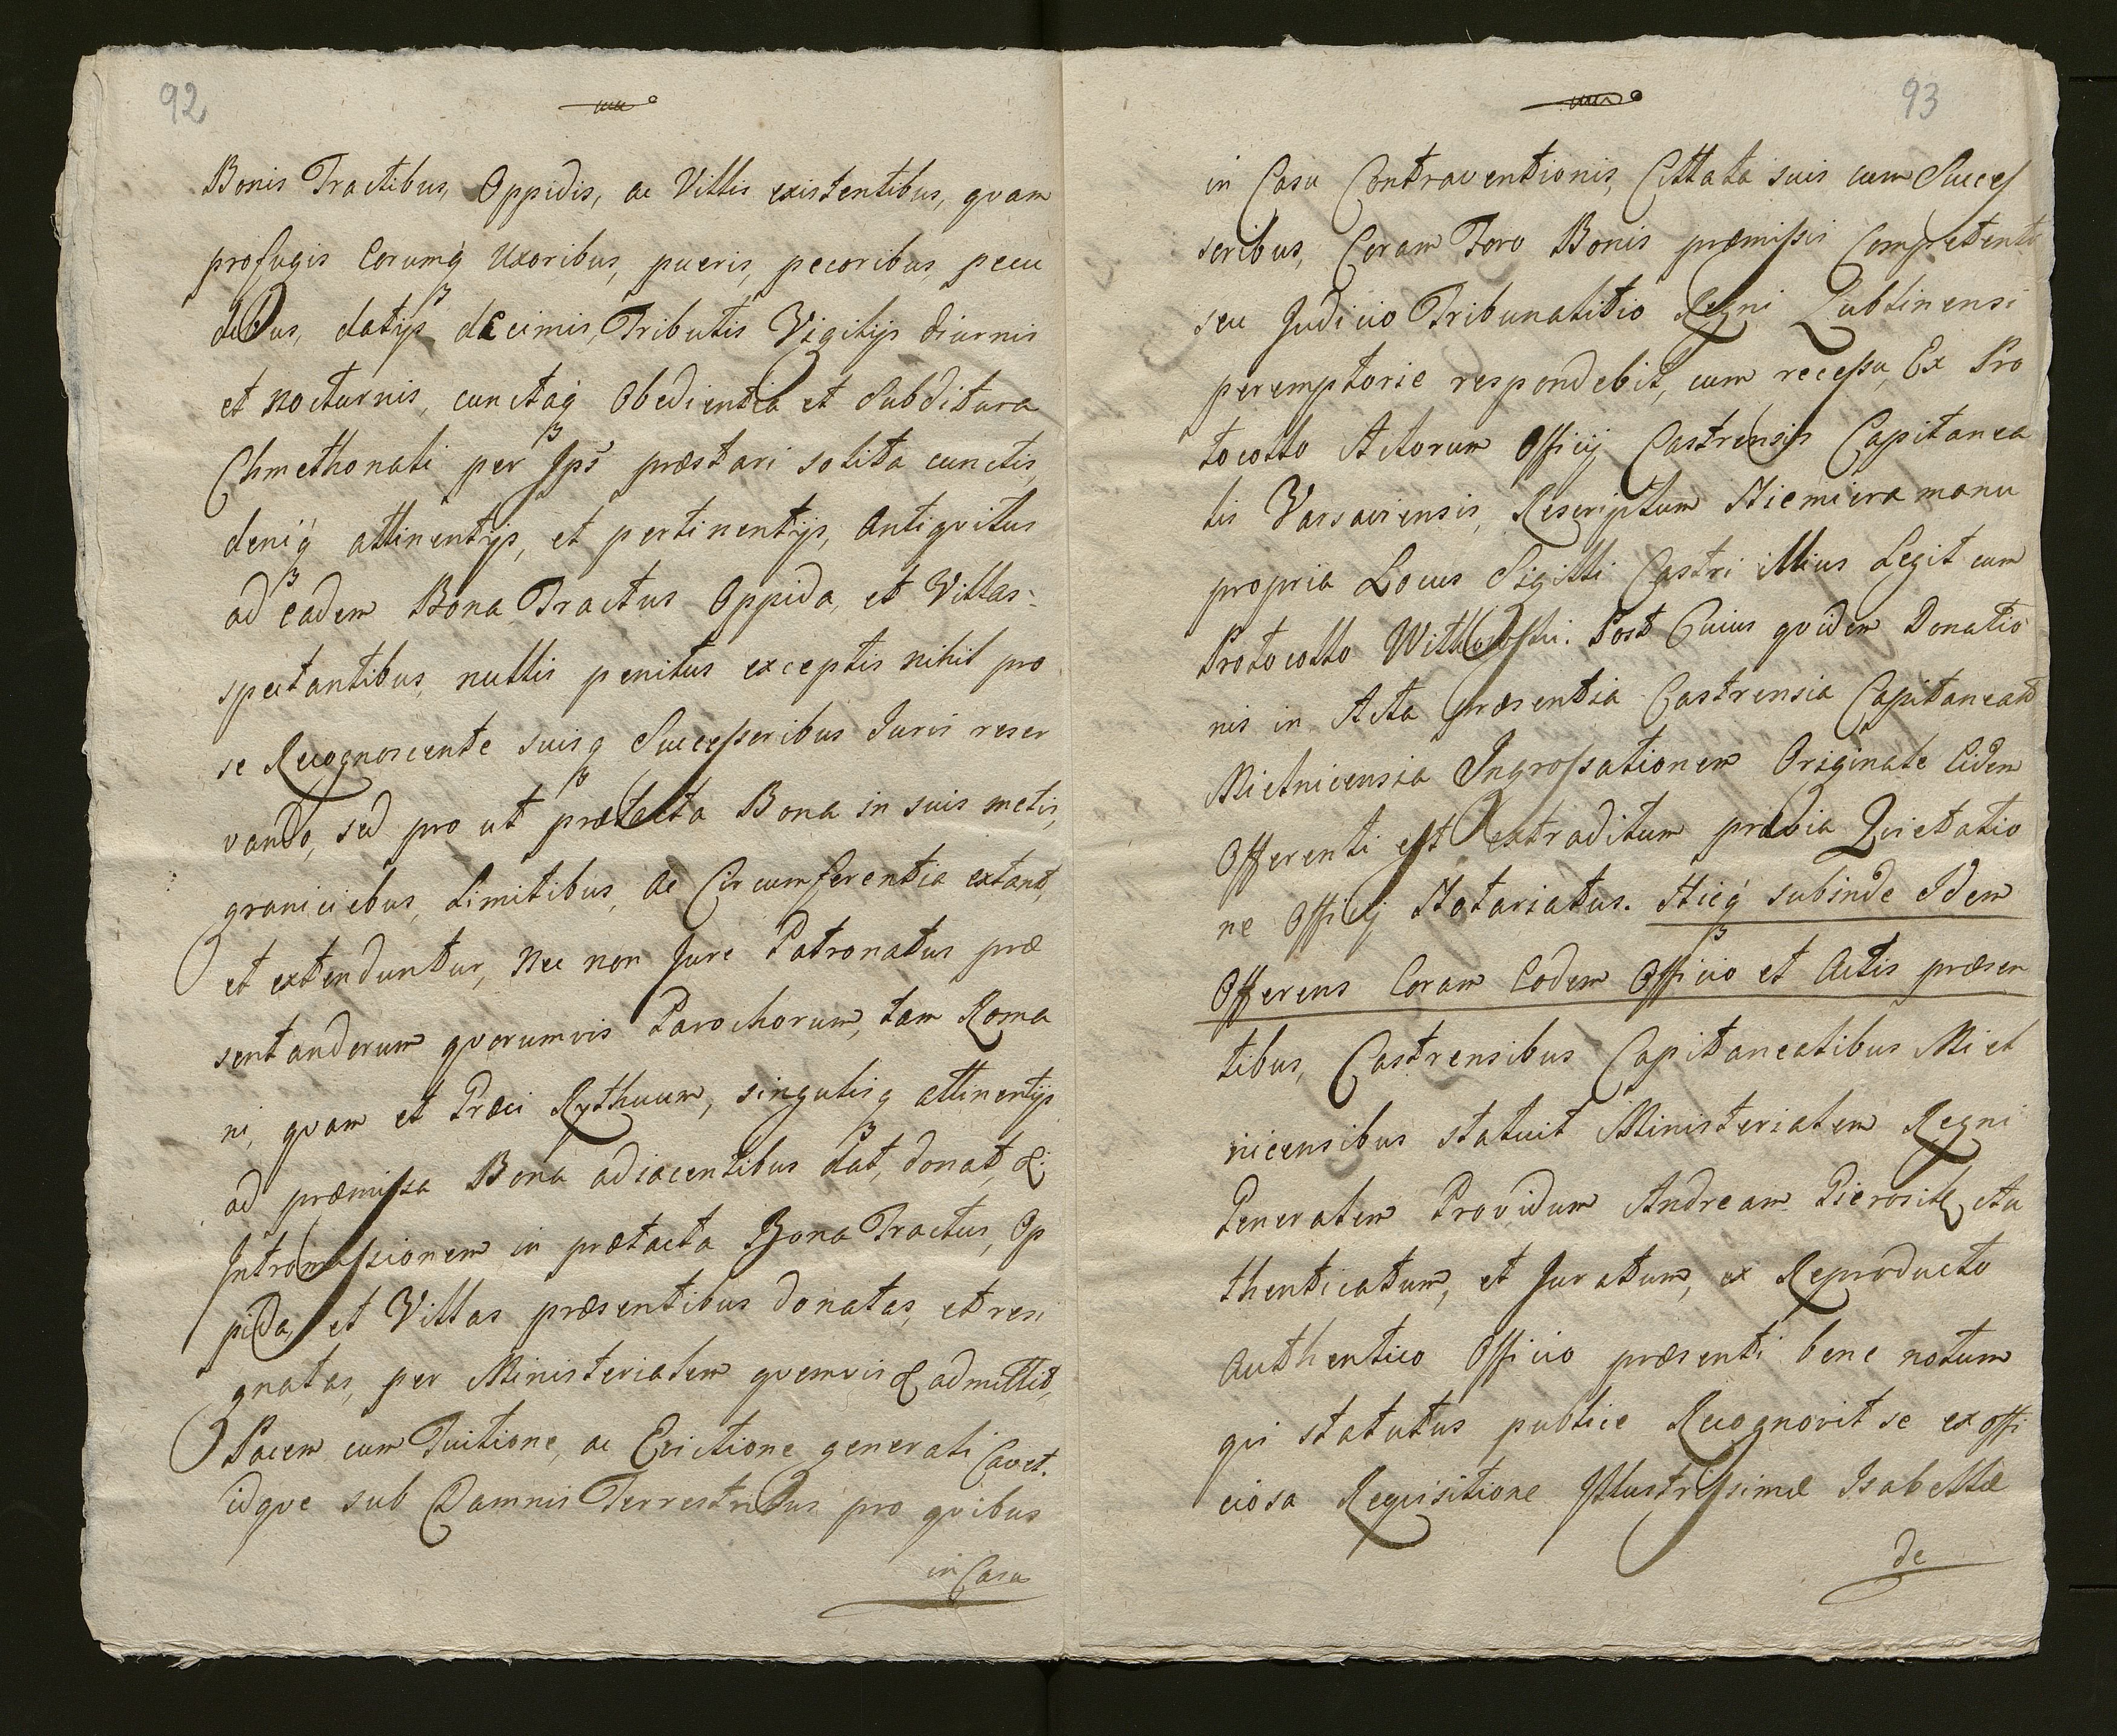 92
Bonis Tractibus, Oppidis, ac Villis existentibus, qvam
profugis Eorumq Uxoribus, pueris, pecoribus, pecu
dibus, datijs decimis, Tributis Vigilijs diurnis
et nocturnis, cunctaq Obedientia et Subditura
Chmethonali per Ips præstari solita cunctis,
deniq attinentijs, et pertinentijs, Antiqvitus
ad eadem Bona Tractus Oppida, et Villas
spectantibus, nullis penitus exceptis nihil pro
se Recognoscente suisq Successoribus Iuris reser
vando, sed pro ut prætacta Bona in suis metis,
graniciebus, Limitibus, ac Circumferentia extant,
et extenduntur, Nec non Jure Patronatus præ
sentandorum qvorumvis Parochorum, tam Roma
ni, qvam et Græci Rythuum, singulisq attinentijs
ad præmissa Bona adiacentibus dat, donat, &
Intromissionem in prætacta Bona Tractus, Op
pida, et Villas præsentibus donatas, et resi
gnatas, per Ministerialem qvemvis & admittit,
Pacem cum Tuitione, ac Evictione generali Cavet.
idqve sub Damnis Terrestribus pro qvibus
in Casu
93
in Casu Contraventionis, Cittata suis cum Succes
soribus, Coram Foro Bonis præmissis Competenti
seu Judicio Tribunalitio Regni Lublinensi
peremptorie respondebit, cum recessu, Ex Pro
tocollo Actorum Officij Castrensis Capitanea
lis Varsaviensis, Rescriptum Niemiera manu
propria Locus Sigilli Castri illius Legit cum
Protocollo Post Cuius qvidem Donatio
nis in Acta præsentia Castrensia Capitanealia
Mielnicensia Ingrossationem Originale Eidem
Offerenti est extraditum prævia Qvietatio
ne Officij Notariatus. Hicq subinde Idem
Offerens Coram Eodem Officio et Actis præsen
tibus, Castrensibus Capitanealibus Miel
nicensibus statuit Ministerialem Regni
Generalem Providum Andream Au
thenticatum, et Juratum, ex Reproducto
Authentico Officio præsenti bene notum
qui statutus publice Recognovit se ex offi
ciosa Reqvisitione Illustrissimæ Isabellæ
de